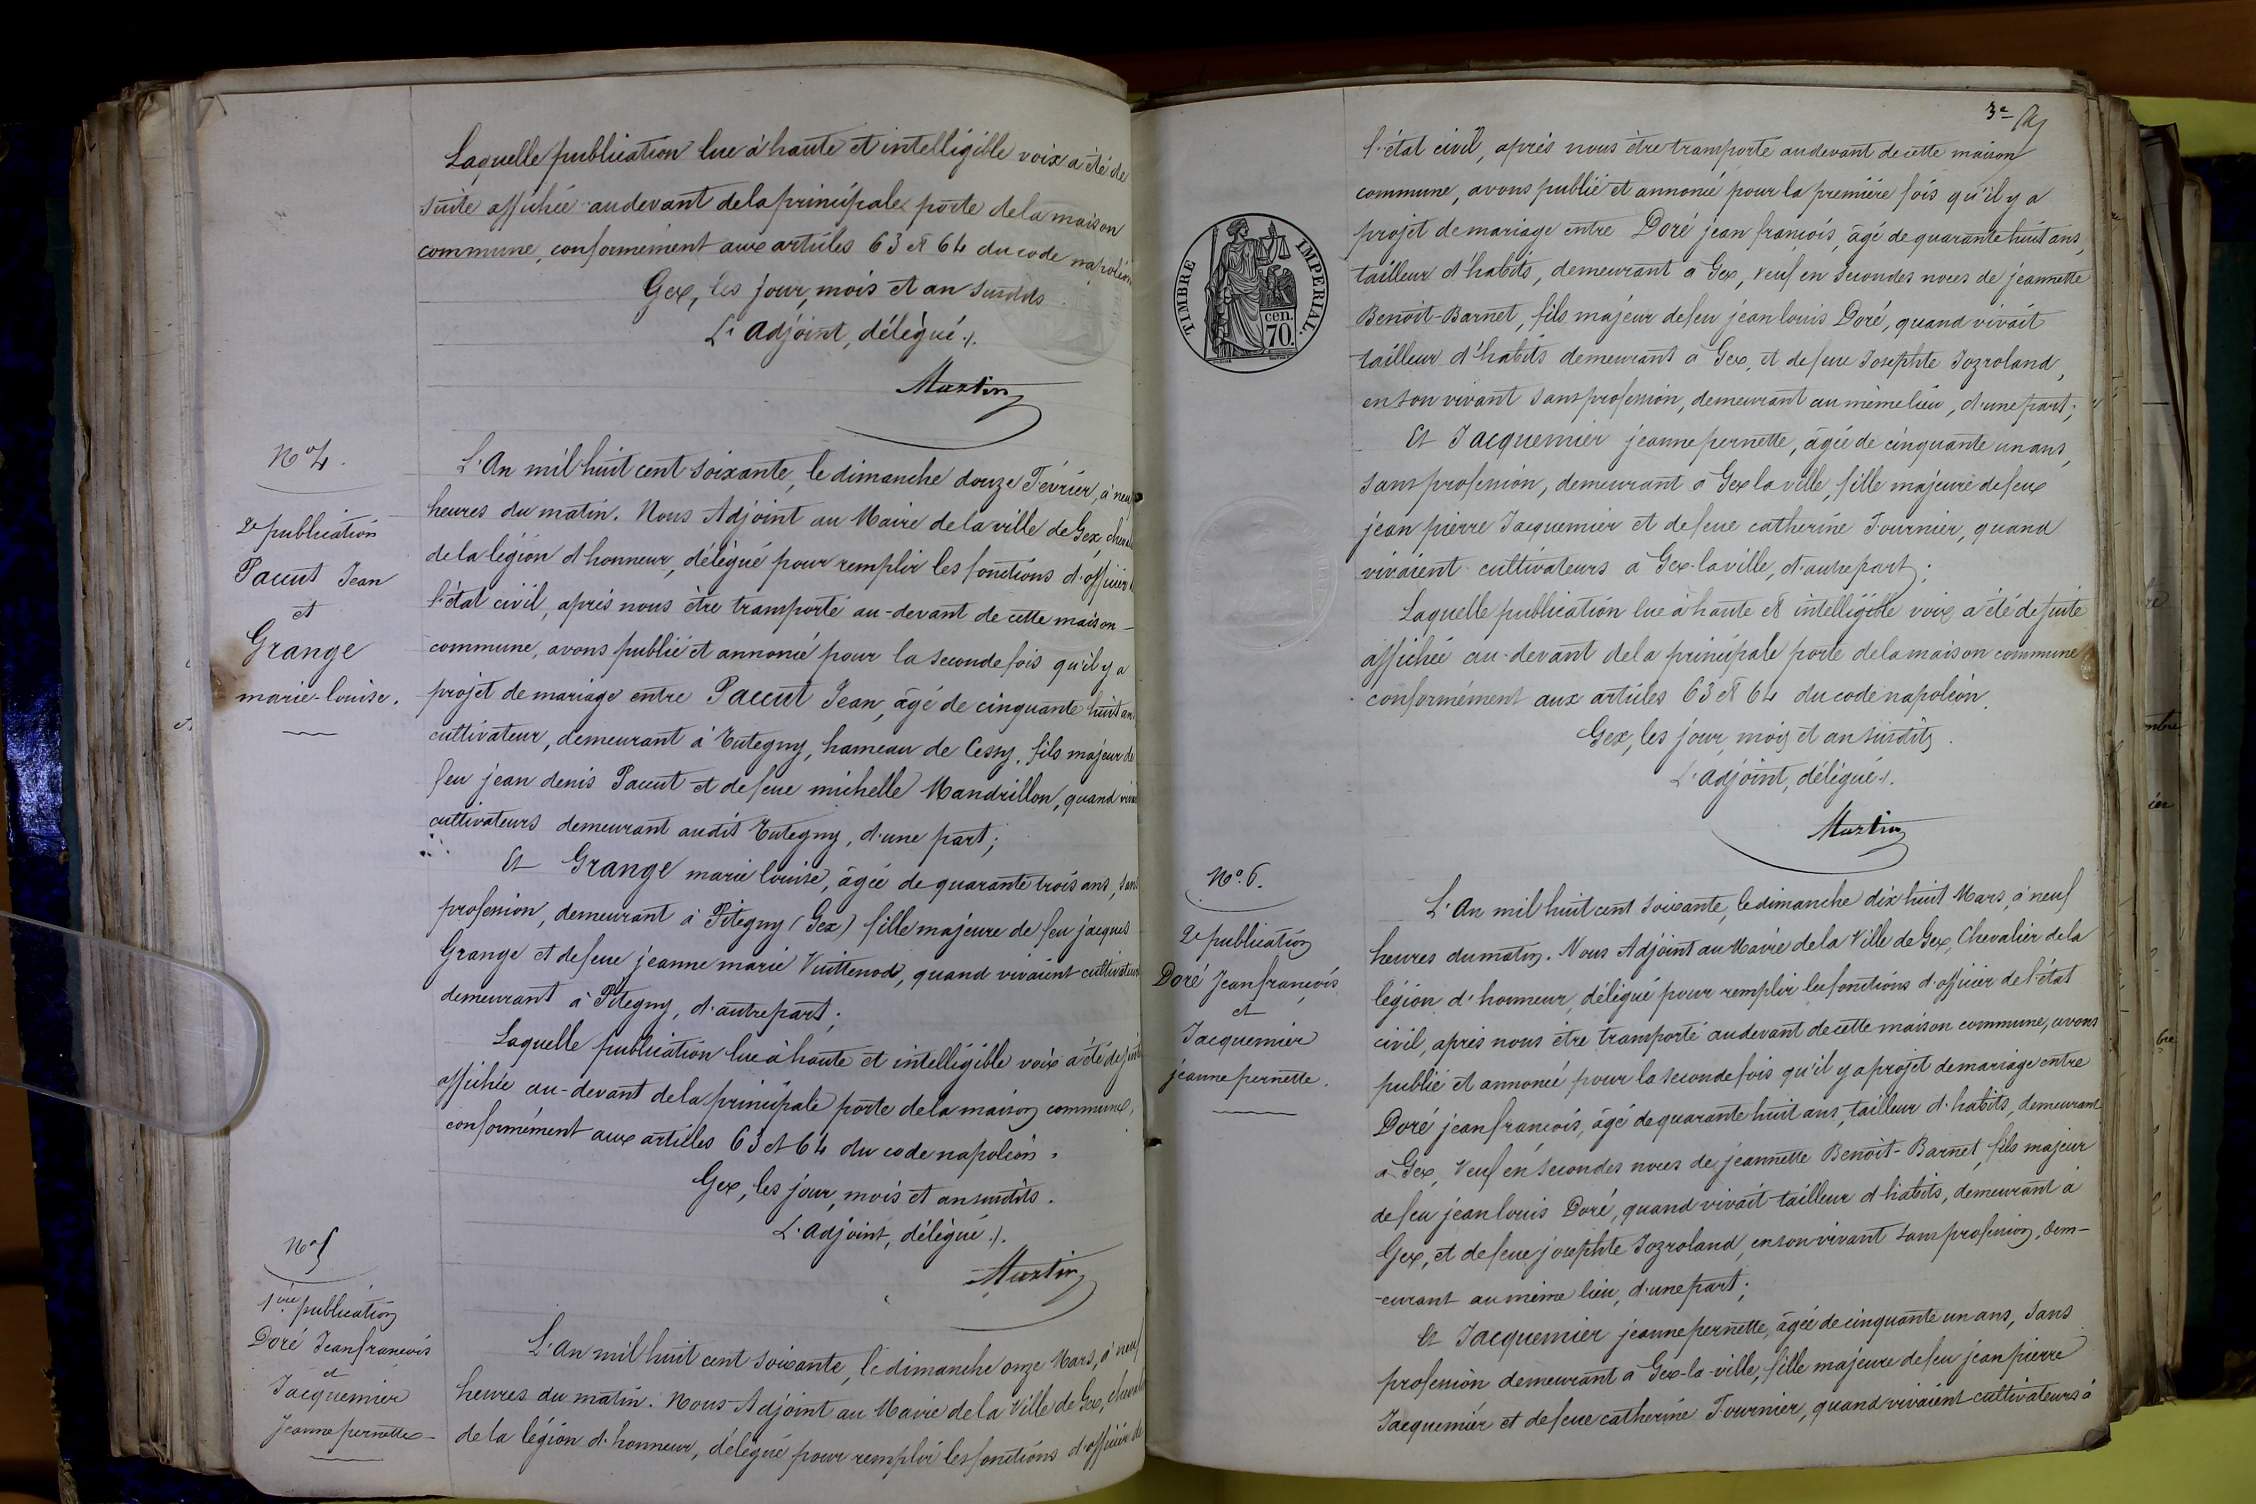 Laquelle publication lue à haute et intelligible voix a été de
suite affichée au devant de la principale porte de la maison
commune, conformément aux articles 63 et 64 du code napoléon
Gex, les jour, mois et an susdits
L'adjoint, délégué.
Martin
N° 4.
2e publication
Pacut Jean
et
Grange
marie-louise.
L'An mil huit cent soixante, le dimanche douze Février, à neuf
heures du matin. Nous Adjoint au Maire de la ville de Gex, cheval
de la légion d'honneur, délégué pour remplir les fonctions d'officier
l'état civil, après nous être transporté au-devant de cette maison
commune, avons publié et annoncé pour la seconde fois qu'il y a
projet de mariage entre Paccut Jean, âgé de cinquante huit ans
cultivateur, demeurant à Tutegny, hameau de Cessy, fils majeur de
feu jean denis Pacut et de feue michelle Mandrillon, quand viv
cultivateurs demeurant audit Tutegny, d'une part;
Et Grange marie louise, âgée de quarante trois ans, sans
profession, demeurant à Pitegny (Gex) fille majeure de feu jacques
Grange et de feue jeanne marie Vuittenod, quand vivaient cultivateurs
demeurant à Pitegny, d'autre part;
Laquelle publication lue à haute et intelligible voix a été de suite
affichée au-devant de la principale porte de la maison commune,
conformément aux articles 63 et 64 du code napoléon.
Gex, les jour, mois et an susdits.
L'adjoint, délégué.
Martin
N° 5
1ère publication
Doré Jean françois
et
Jacquemier
Jeanne pernette
L'An mil huit cent soixante, le dimanche onze Mars, à neuf
heures du matin. Nous Adjoint au Maire de la Ville de Gex, cheval
de la légion d'honneur, délégué pour remplir les fonctions d'officier de
3e
l'état civil, après nous être transporté au devant de cette maison
commune, avons publié et annoncé pour la première fois qu'il y a
projet de mariage entre Doré jean françois, âgé de quarante huit ans,
tailleur d'habits, demeurant à Gex, veuf en secondes noces de jeannette
Benoit-Barnet, fils majeur de feu jean louis Doré, quand vivait
tailleur d'habits demeurant à Gex, et de feue Josephte Jozroland,
en son vivant sans profession, demeurant au même lieu, d'une part;
Et Jacquemier jeanne pernette, âgée de cinquante un ans,
sans profession, demeurant à Gex la ville, fille majeure de feux
jean pierre Jacquemier et de feue catherine Fournier, quand
vivaient cultivateurs à Gex-la ville, d'autre part;
Laquelle publication lue à haute et intelligible voix a été de suite
affichée au-devant de la principale porte de la maison commune
conformément aux articles 63 et 64 du code napoléon.
Gex, les jour, mois et an susdits.
L'adjoint, délégué.
Martin
TIMBRE IMPERIAL.
cen.
70.
N° 6.
2e publication
Doré Jean françois
et
Jacquemier
jeanne pernette.
L'An mil huit cent soixante, le dimanche dix huit Mars, à neuf
heures du matin. Nous Adjoint au Maire de la Ville de Gex, Chevalier de la
légion d'honneur, délégué pour remplir les fonctions d'officier de l'état
civil, après nous être transporté au devant de cette maison commune, avons
publié et annoncé pour la seconde fois qu'il y a projet de mariage entre
Doré jean françois, âgé de quarante huit ans, tailleur d'habits, demeurant
à Gex, Veuf en secondes noces de jeannette Benoit-Barnet, fils majeur
de feu jean louis Doré, quand vivait tailleur d'habits, demeurant à
Gex, et de feue josephte Jozroland, en son vivant sans profession, dem-
-eurant au même lieu, d'une part;
Et Jacquemier jeanne pernette, âgée de cinquante un ans, sans
profession demeurant à Gex-la-ville, fille majeure de feu jean pierre
Jacquemier et de feue catherine Fournier, quand vivaient cultivateurs à